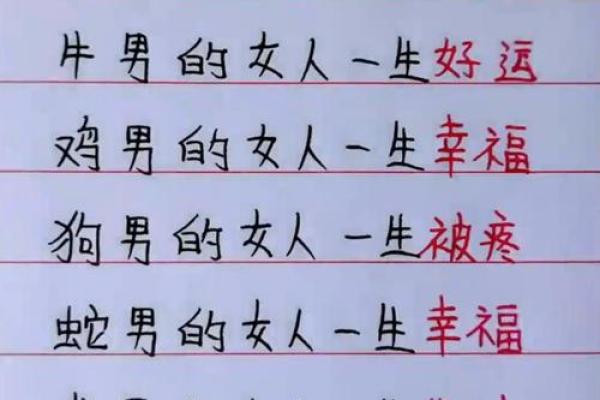 牛男的女人一生好运
鸡男的女人一生幸福
狗男的女人一生被疼
蛇男的女人一生幸福